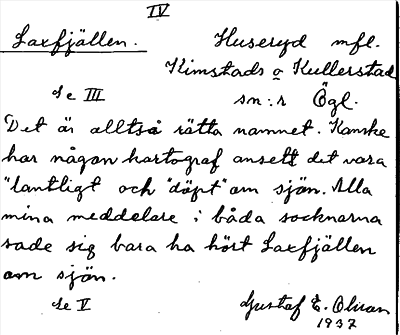 IV
Laxfjällen. Huseryd mfl.
Kimstads o Kullerstad
Se III sn:r Ögl.
Det är alltså rätta namnet. Kanske
har någon kartograf ansett det vara
"lantligt och "döpt" om sjön. Alla
mina meddelare i båda socknarna
sade sig bara ha hört Laxfjällen
om sjön.
Se V Gustaf E. Olsson
1937